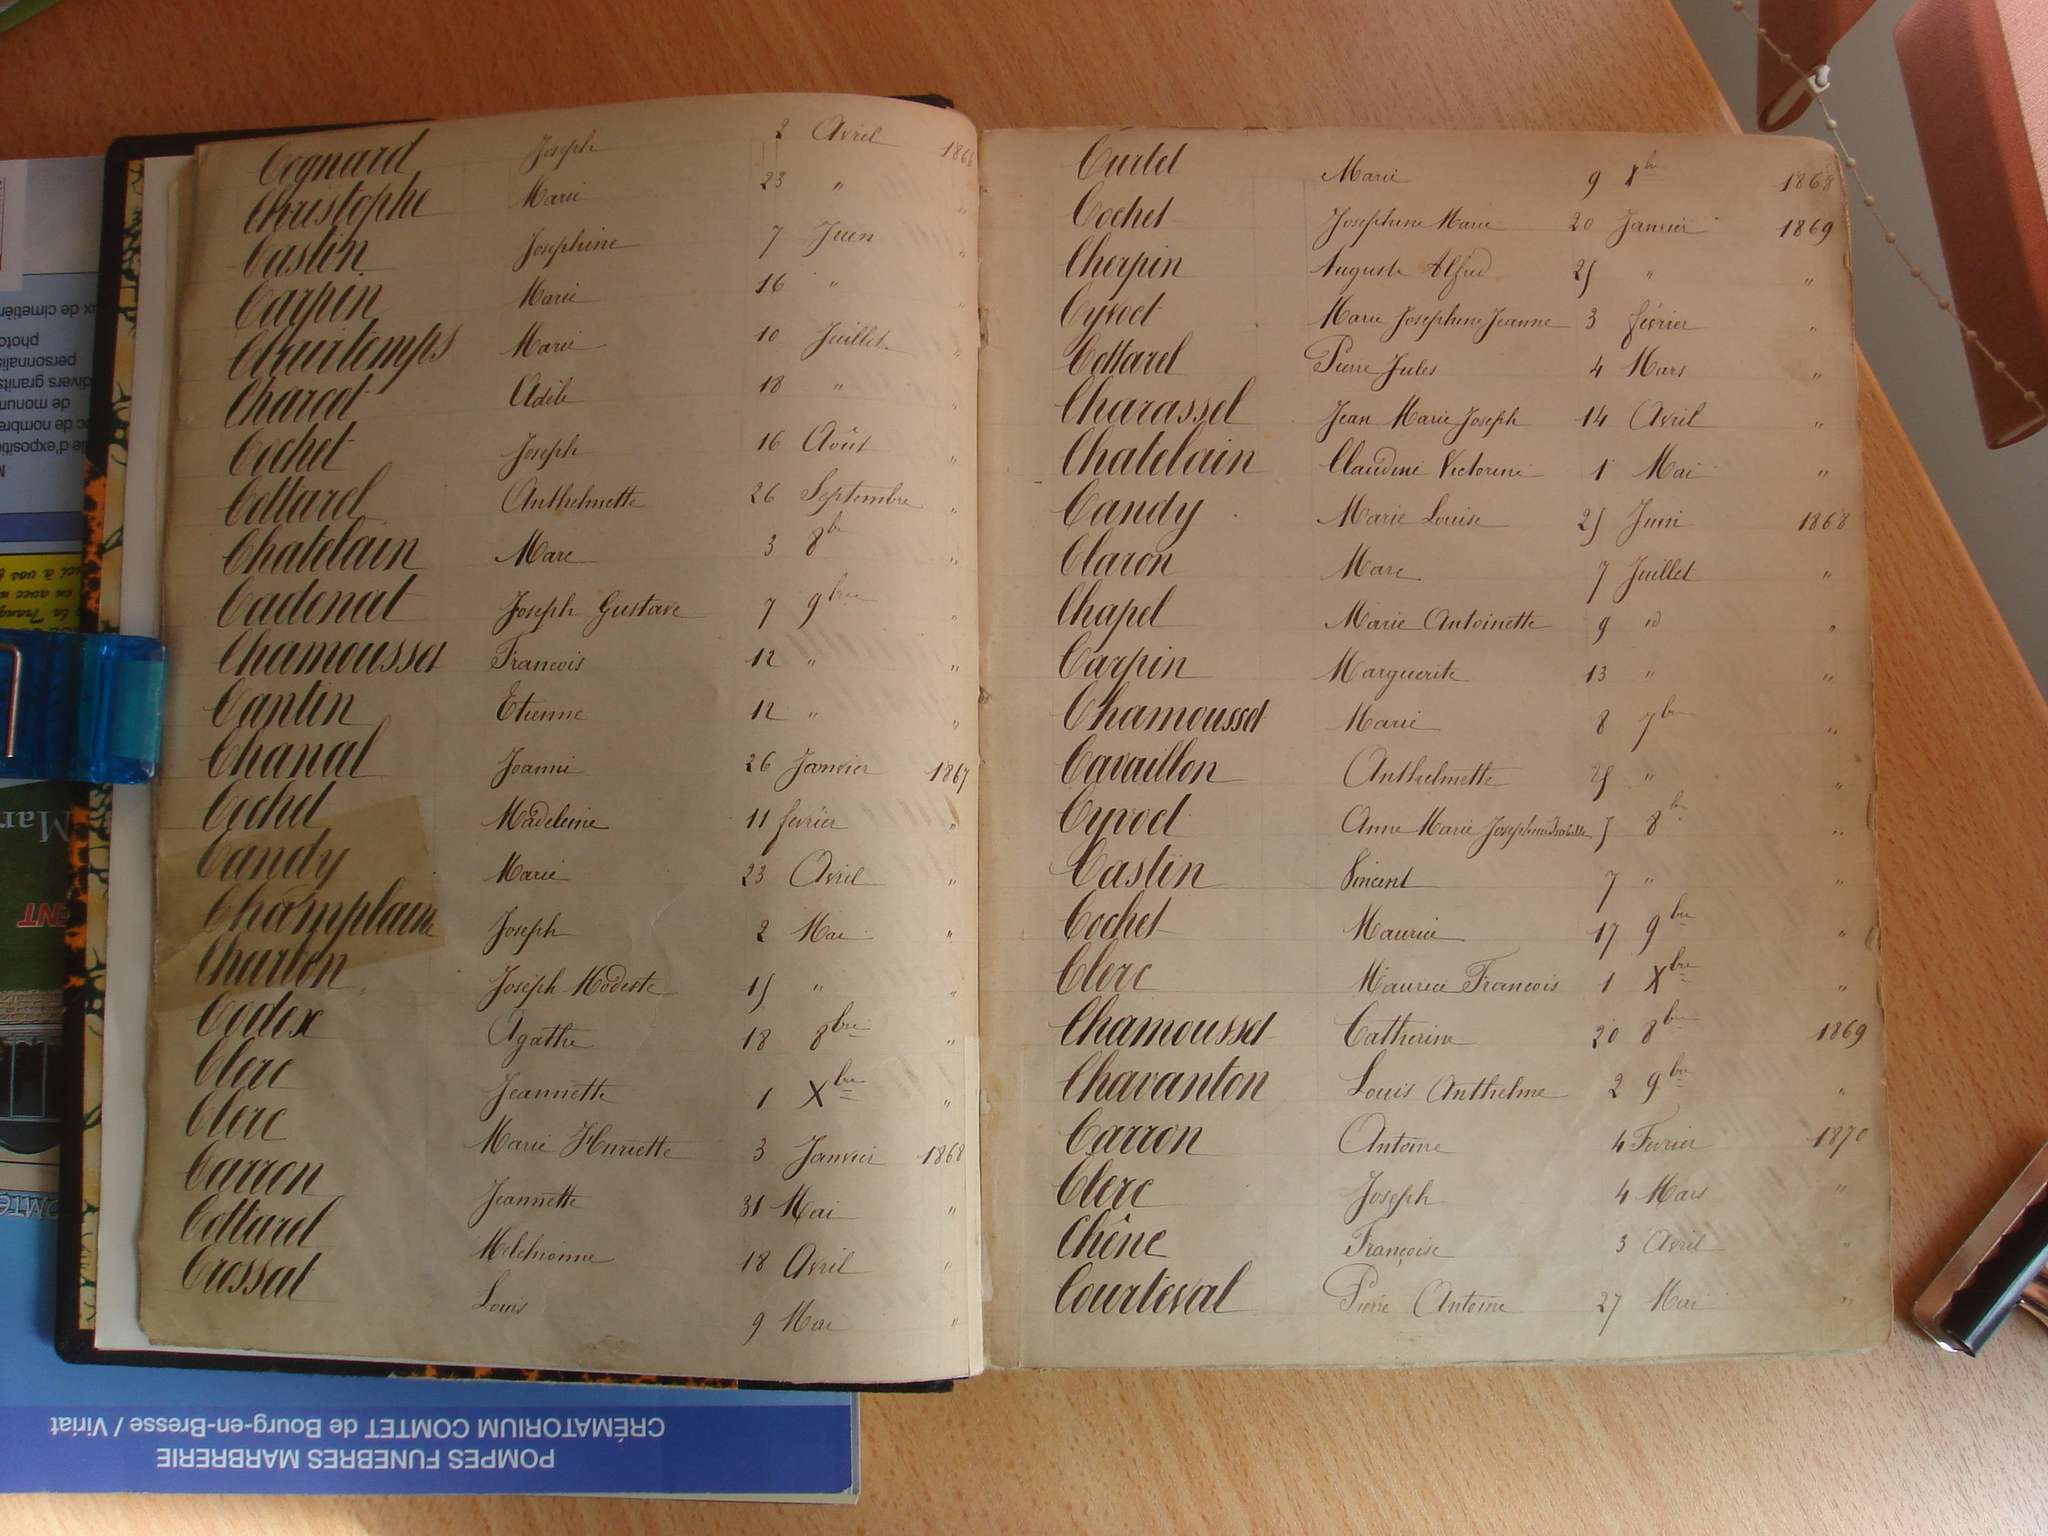 Cognard Joseph 2 Avril 1866
Christophe Marie 23 "  "
Castin Josephine 7 Juin "
Carpin Marie 16 " "
Marie 10 Juillet "
Charcot Adèle 18 " "
Cochet Joseph 16 Août "
Cottarel Anthelmette 26 Septembre "
Chatelain Marc 3 8bre "
Cadenat Joseph Gustave 7 9bre "
Chamousset Francois 12 " "
Cantin Etienne 12 " "
Chanal Joanni 26 Janvier 1867
Cochet Madeleine 11 février "
Candy Marie 23 Avril "
Champlain Joseph 2 Mai "
Charlon Joseph Modeste 15 " "
Codex Agathe 18 8bre "
Clerc Jeannette 1 Xbre "
Clerc Marie Henriette 3 Janvier 1868
Carron Jeannette 31 Mai "
Cottarel Melchionne 18 Avril "
Crossat Louis 9 Mai "
Curtet Marie 9 Xbre 1868
Cochet Josephine Marie 20 Janvier 1869
Cherpin Auguste Alfred 25 " "
Cyvoct Marie Josephine Jeanne 3 février "
Cottarel Pierre Jules 4 Mars "
Charassel Jean Marie Joseph 14 Avril "
Chatelain Claudine Victorine 1 Mai "
Candy Marie Louise 25 Juin 1868
Claron Marc 7 Juillet "
Chapel Marie Antoinette 9 id "
Carpin Marguerite 13 " "
Chamousset Marie 8 7bre "
Cavaillon Anthelmette 25 " "
Cyvoct Anne Marie Josephine Isabelle 5 8bre "
Castin Vincent 7 " "
Cochet Maurice 17 9bre "
Clerc Maurice Francois 1 Xbre "
Chamousset Catherine 20 8bre 1869
Chavanton Louis Anthelme 2 9bre "
Carron Antoine 4 Fevrier 1870
Clerc Joseph 4 Mars "
Chêne Françoise 3 Avril "
Courteval Pierre Antoine 27 Mai "
POMPES FUNEBRES MARBRERIE
CRÉMATORIUM COMTET de Bourg-en-Bresse / Viriat